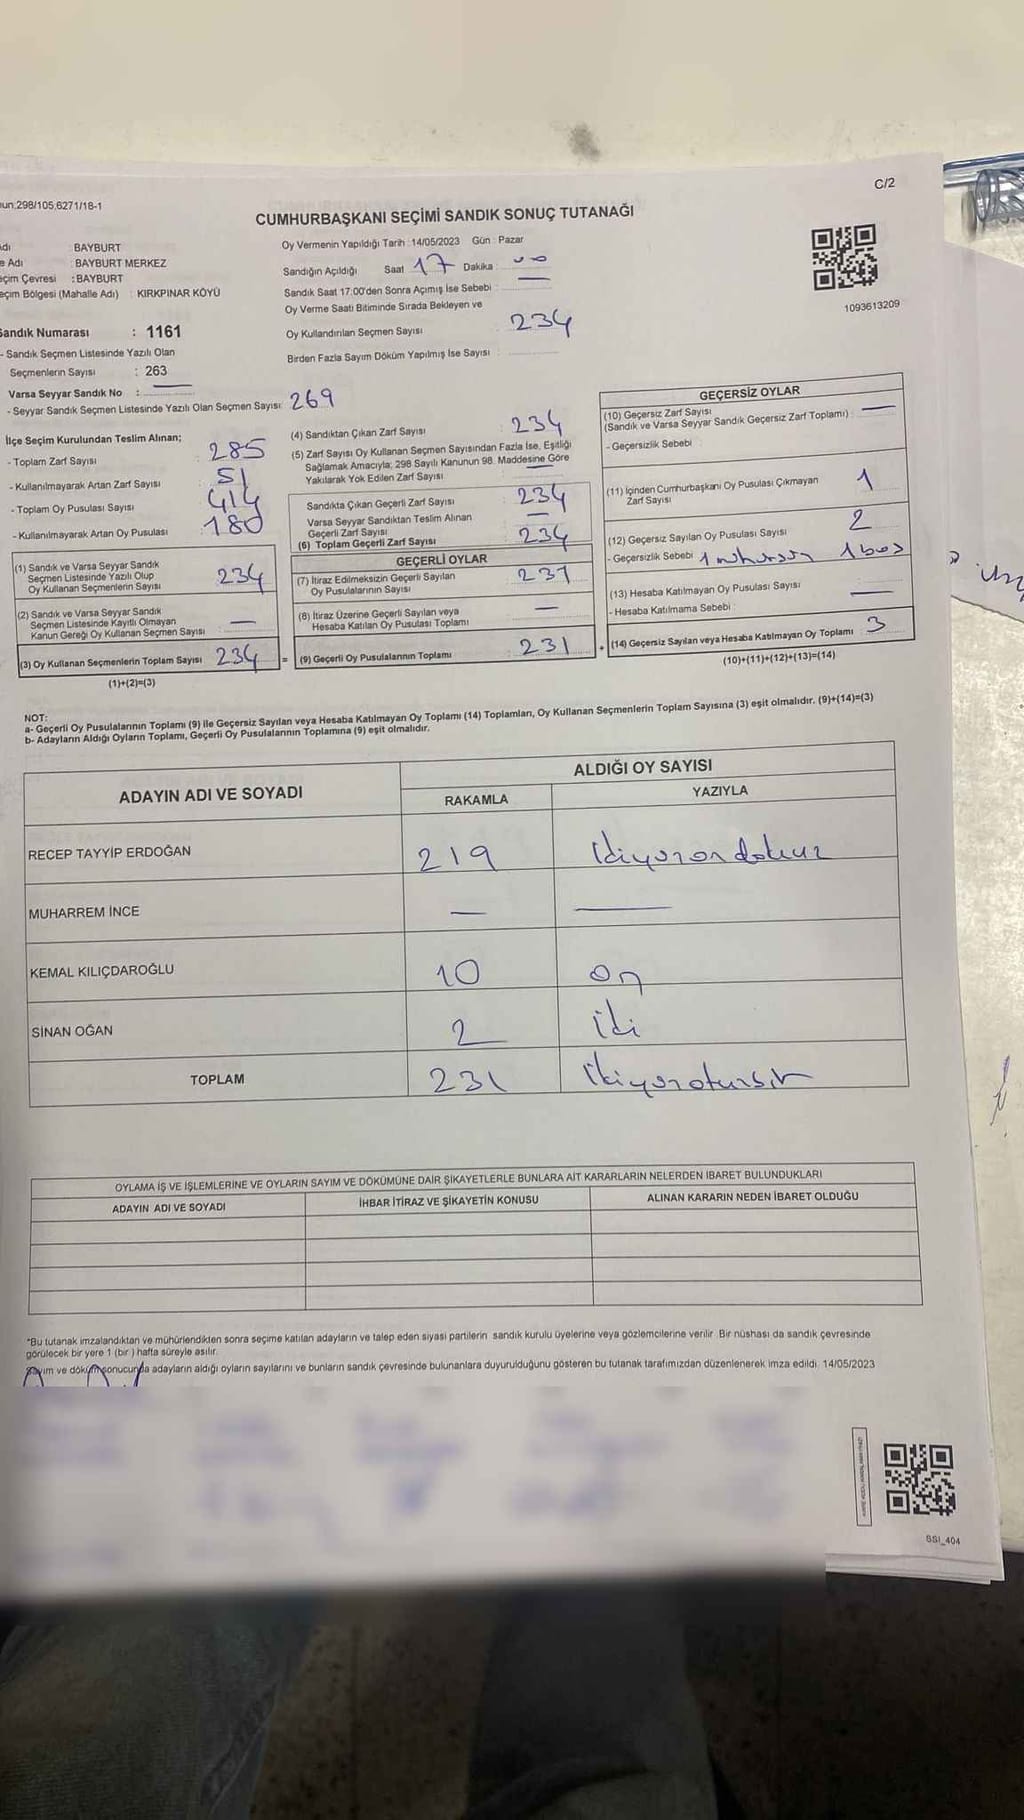 C/2
un;298/105,6271/18-1
CUMHURBAŞKANI SEÇİMİ SANDIK SONUÇ TUTANAĞI
dı : BAYBURT
e Adı : BAYBURT MERKEZ
eçim Çevresi : BAYBURT
eçim Bölgesi (Mahalle Adı) : KIRKPINAR KÖYÜ
Sandık Numarası : 1161
- Sandık Seçmen Listesinde Yazılı Olan
Seçmenlerin Sayısı : 263
Varsa Seyyar Sandık No : —
- Seyyar Sandık Seçmen Listesinde Yazılı Olan Seçmen Sayısı: 269
Oy Vermenin Yapıldığı Tarih : 14/05/2023 Gün : Pazar
Sandığın Açıldığı Saat 17 Dakika : 00
Sandık Saat 17:00'den Sonra Açımış İse Sebebi : —
Oy Verme Saati Bitiminde Sırada Bekleyen ve
Oy Kullandırılan Seçmen Sayısı : 234
Birden Fazla Sayım Döküm Yapılmış İse Sayısı :
1093613209
İlçe Seçim Kurulundan Teslim Alınan;
- Toplam Zarf Sayısı : 285
- Kullanılmayarak Artan Zarf Sayısı : 51
- Toplam Oy Pusulası Sayısı : 414
- Kullanılmayarak Artan Oy Pusulası : 180
(1) Sandık ve Varsa Seyyar Sandık
Seçmen Listesinde Yazılı Olup
Oy Kullanan Seçmenlerin Sayısı 234
(2) Sandık ve Varsa Seyyar Sandık
Seçmen Listesinde Kayıtlı Olmayan
Kanun Gereği Oy Kullanan Seçmen Sayısı —
(3) Oy Kullanan Seçmenlerin Toplam Sayısı 234 =
(1)+(2)=(3)
(4) Sandıktan Çıkan Zarf Sayısı 234
(5) Zarf Sayısı Oy Kullanan Seçmen Sayısından Fazla İse, Eşitliği
Sağlamak Amacıyla; 298 Sayılı Kanunun 98. Maddesine Göre
Yakılarak Yok Edilen Zarf Sayısı : —
Sandıkta Çıkan Geçerli Zarf Sayısı : 234
Varsa Seyyar Sandıktan Teslim Alınan
Geçerli Zarf Sayısı : —
(6) Toplam Geçerli Zarf Sayısı 234
GEÇERLİ OYLAR
(7) İtiraz Edilmeksizin Geçerli Sayılan
Oy Pusulalarının Sayısı : 231
(8) İtiraz Üzerine Geçerli Sayılan veya
Hesaba Katılan Oy Pusulası Toplamı : —
(9) Geçerli Oy Pusulalarının Toplamı : 231 +
GEÇERSİZ OYLAR
(10) Geçersiz Zarf Sayısı
(Sandık ve Varsa Seyyar Sandık Geçersiz Zarf Toplamı) : —
- Geçersizlik Sebebi :
(11) İçinden Cumhurbaşkanı Oy Pusulası Çıkmayan
Zarf Sayısı 1
(12) Geçersiz Sayılan Oy Pusulası Sayısı 2
- Geçersizlik Sebebi 1 mühürsüz 1 boş
(13) Hesaba Katılmayan Oy Pusulası Sayısı : —
- Hesaba Katılmama Sebebi :
(14) Geçersiz Sayılan veya Hesaba Katılmayan Oy Toplamı 3
(10)+(11)+(12)+(13)=(14)
NOT:
a- Geçerli Oy Pusulalarının Toplamı (9) ile Geçersiz Sayılan veya Hesaba Katılmayan Oy Toplamı (14) Toplamları, Oy Kullanan Seçmenlerin Toplam Sayısına (3) eşit olmalıdır. (9)+(14)=(3)
b- Adayların Aldığı Oyların Toplamı, Geçerli Oy Pusulalarının Toplamına (9) eşit olmalıdır.
ADAYIN ADI VE SOYADI ALDIĞI OY SAYISI
RAKAMLA YAZIYLA
RECEP TAYYİP ERDOĞAN 219 İkiyüzondokuz
MUHARREM İNCE — —
KEMAL KILIÇDAROĞLU 10 On
SİNAN OĞAN 2 İki
TOPLAM 231 İkiyüzotuzbir
OYLAMA İŞ VE İŞLEMLERİNE VE OYLARIN SAYIM VE DÖKÜMÜNE DAİR ŞİKAYETLERLE BUNLARA AİT KARARLARIN NELERDEN İBARET BULUNDUKLARI
ADAYIN ADI VE SOYADI İHBAR İTİRAZ VE ŞİKAYETİN KONUSU ALINAN KARARIN NEDEN İBARET OLDUĞU
*Bu tutanak imzalandıktan ve mühürlendikten sonra seçime katılan adayların ve talep eden siyasi partilerin sandık kurulu üyelerine veya gözlemcilerine verilir. Bir nüshası da sandık çevresinde
görülecek bir yere 1 (bir ) hafta süreyle asılır.
Sayım ve döküm sonucunda adayların aldığı oyların sayılarını ve bunların sandık çevresinde bulunanlara duyurulduğunu gösteren bu tutanak tarafımızdan düzenlenerek imza edildi. 14/05/2023
SSI_404